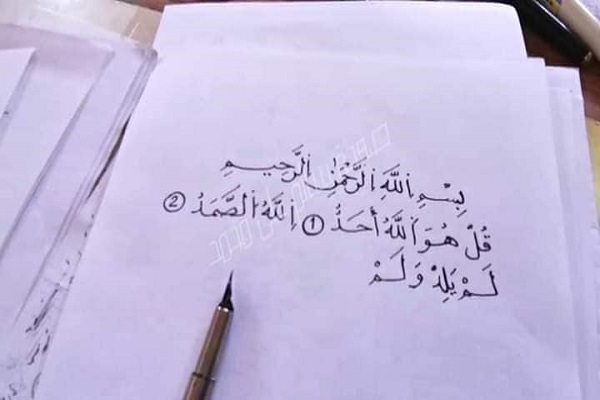 بِسْمِ اللَّهِ الرَّحْمٰنِ الرَّحِيمِ
قُلْ هُوَ اللَّهُ أَحَدٌ ① اللَّهُ الصَّمَدُ ②
لَمْ يَلِدْ وَلَمْ